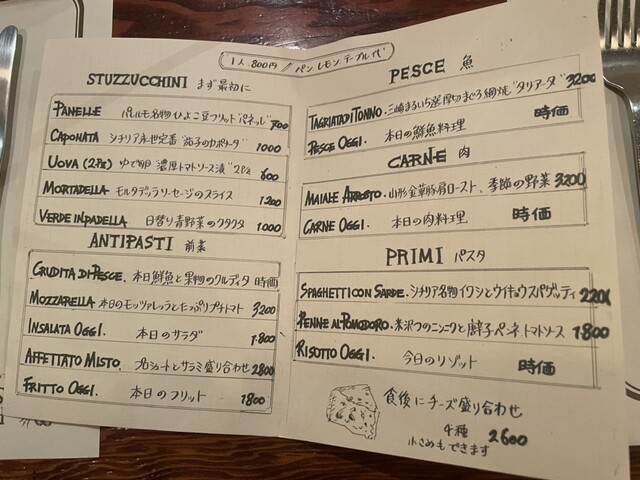 1人 800円 / パン レモン テーブル代
STUZZUCCHINI まず最初に
PANELLE パレルモ名物ひよこ豆フリット"パネッレ" 700
CAPONATA シチリア永世定番"茄子のカポナータ" 1000
UOVA (2PZ) ゆで卵 濃厚トマトソース漬"2PZ 600
MORTADELLA モルタデッラソーセージのスライス 1200
VERDE INPADELLA 日替り青野菜のクタクタ 1000
ANTIPASTI 前菜
CRUDITA DI PESCE. 本日鮮魚と果物のクルディタ 時価
MOZZARELLA 本日のモッツァレッラとたっぷりプチトマト 3200
INSALATA OGGI. 本日のサラダ 1.800
AFFETTATO MISTO. プロシュートとサラミ盛り合わせ 2800
FRITTO OGGI. 本日のフリット 1800
PESCE 魚
TAGRIATA DI TONNO. 三崎まるいち厚切まぐろ網焼"タリアータ" 3200
PESCE OGGI. 本日の鮮魚料理 時価
CARNE 肉
MAIALE ARROSTO. 山形金華豚肩ロースト、季節の野菜 3200
CARNE OGGI. 本日の肉料理 時価
PRIMI パスタ
SPAGHETTI CON SARDE. シチリア名物イワシとウイキョウスパゲッティ 2200
PENNE AL POMODORO. 米沢のニンニクと唐辛子ペンネトマトソース 1800
RISOTTO OGGI. 今日のリゾット 時価
食後にチーズ盛り合わせ
4種 2600
小さめもできます